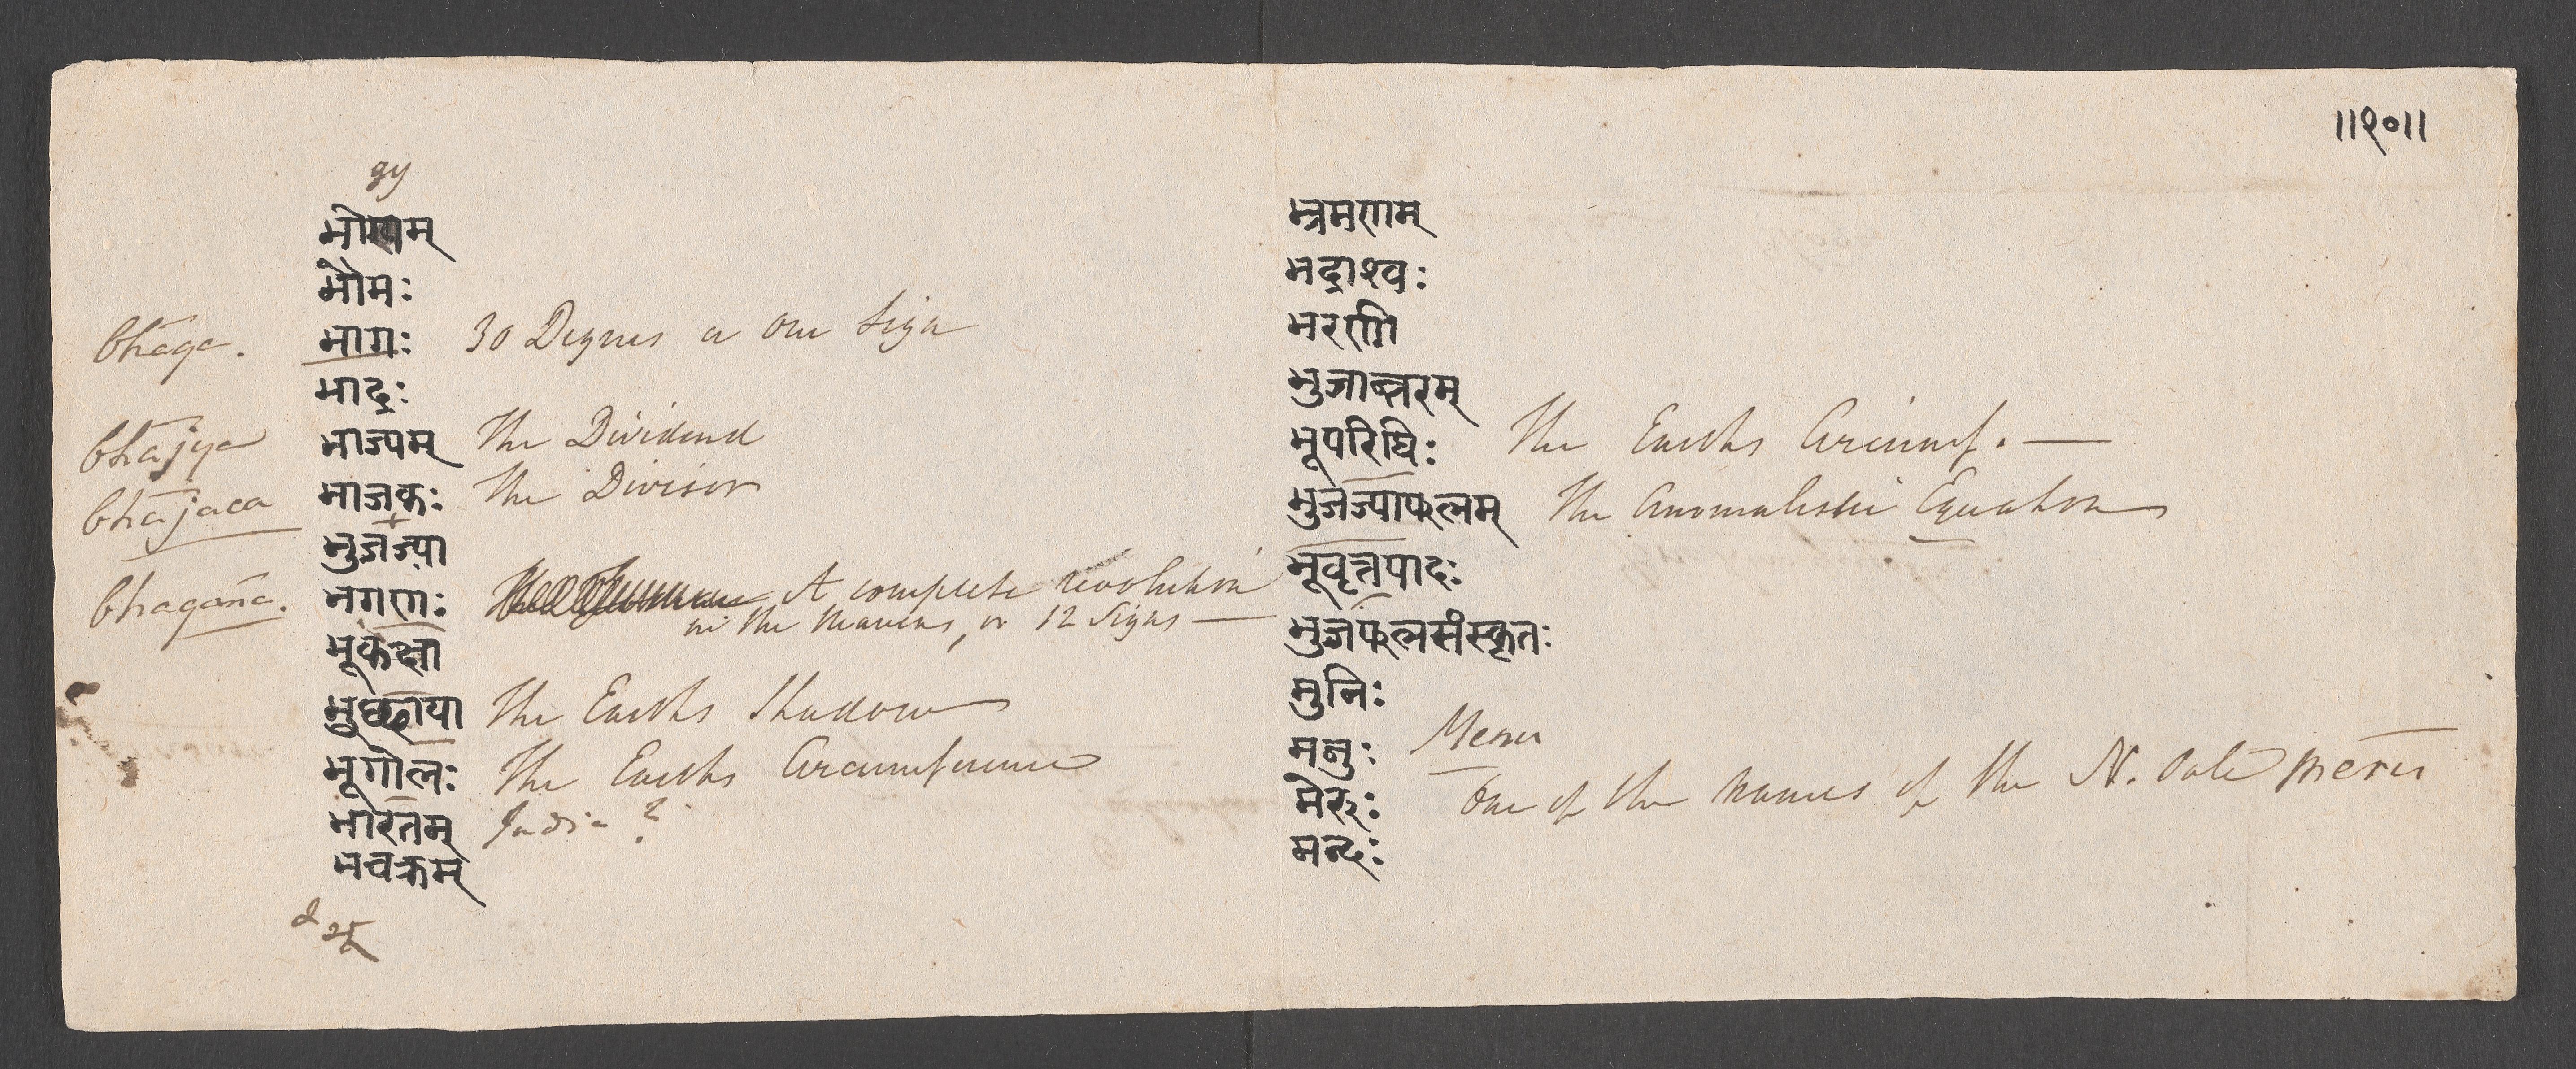 ॥१०॥
gy
भोग्यम्
भौमः
bhāga. भागः 30 Degrees or One Sign
भाद्रः
bhājya भाज्यम् The Dividend
bhājaca भाजकः The Divisor
भुजज्या
bhagaṅa. भगणः A complete revolution
in the Heavens, or 12 Signs —
भूकक्षा
भुच्छाया The Earths Shadow
भूगोलः The Earths Circumference
भारतम् India ?
भचक्रम्
भ्रमणम्
भद्राश्वः
भरणी
भुजान्तरम्
भूपरिधिः The Earths Circumf. —
भुजज्याफलम् The Anomalistic Equation
भूवृत्तपादः
भुजफलसंस्कृतः
मुनिः
मनुः Menu
मेरुः One of the names of the N. Pole meru
मन्दः